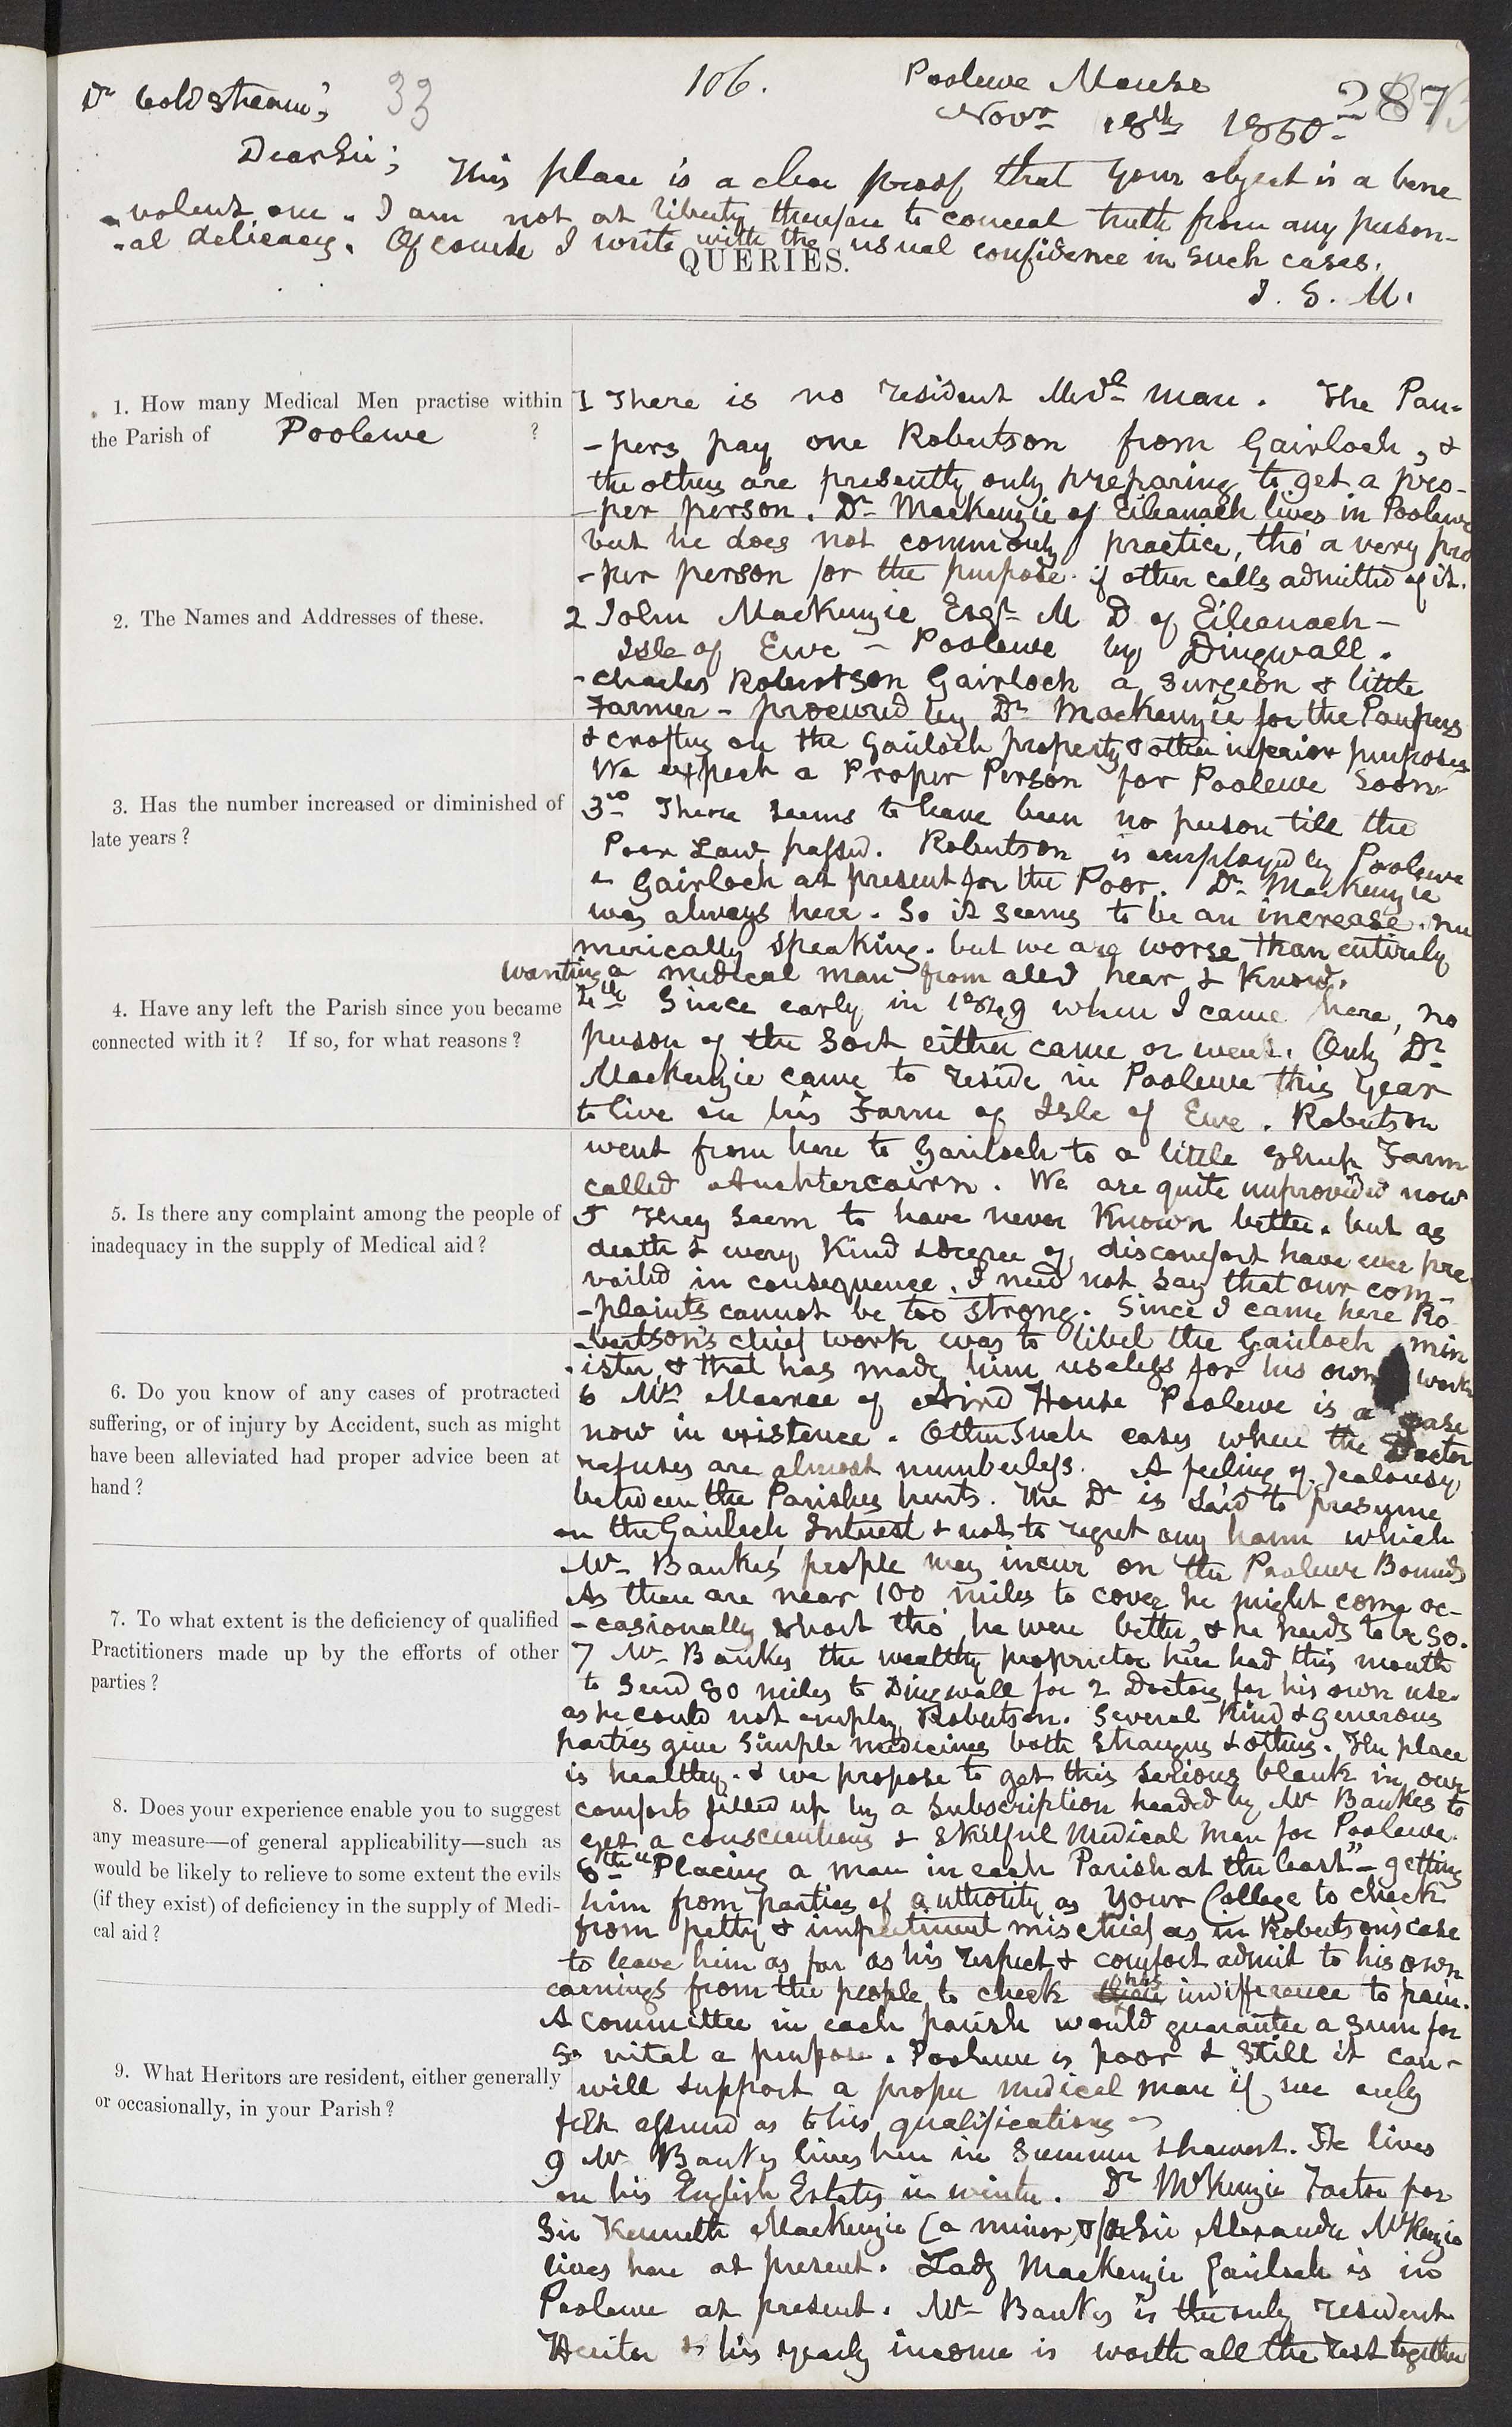 106.
Poolewe Manse
Novr 18th 1850
287
Dr Coldstream;
33
Dear Sir;
This place is a clear proof that your object is a bene
-volent one. I am not at liberty therefore to conceal truth from any person-
-al delicacy. Of course I write with the usual confidence in such cases.
J. S. M.
QUERIES.
1. How many Medical Men practise within
the Parish of Poolewe ?
1 There is no resident Medl man. The Pau-
-pers pay one Robertson from Gairloch, &
the others are presently only preparing to get a pro-
-per person. Dr MacKenzie of Eileanach lives in Poolewe
but he does not commonly practice, tho' a very pro
-per person for the purpose if other calls admitted of it.
2. The Names and Addresses of these.
2 John MacKenzie Esqr M D of Eileanach -
Isle of Ewe - Poolewe by Dingwall.
- Charles Robertson Gairloch a Surgeon & little
Farmer - procured by Dr MacKenzie for the Paupers
& crofters on the Gairloch property & other inferior purposes
We expect a Proper Person for Poolewe soon
3. Has the number increased or diminished of
late years ?
3o There seems to have been no person till the
Poor Law passed. Robertson is employed by Poolewe
& Gairloch at present for the Poor. Dr MacKenzie
was always here. So it seems to be an increase nu
merically speaking. but we are worse than entirely
wanting a medical man from all I hear & know.
4. Have any left the Parish since you became
connected with it ? If so, for what reasons ?
4th Since early in 1849 when I came here, no
person of the sort either came or went. Only Dr
MacKenzie came to reside in Poolewe this year
to live on his Farm of Isle of Ewe. Robertson
went from here to Gairloch to a little sheep Farm
called Auchtercairn. We are quite unprovided now
5. Is there any complaint among the people of
inadequacy in the supply of Medical aid ?
5 They seem to have never known better. but as
death & every kind & degree of discomfort have ever pre
vailed in consequence, I need not say that our com-
-plaints cannot be too strong. Since I came here Ro
-bertson's chief work was to libel the Gairloch min
-ister, & that has made him useless for his own work
6. Do you know of any cases of protracted
suffering, or of injury by Accident, such as might
have been alleviated had proper advice been at
hand ?
6 Mrs Macrae of Aird House Poolewe is a case
now in existence. Other such cases where the Doctor
refuses are almost numberless. A feeling of jealousy
between the Parishes hurts. The Dr is said to presume
on the Gairloch Interest & not to regret any harm which
Mr Bankes' people may incur on the Poolewe Bounds
As there are near 100 miles to cover he might come oc-
-casionally short tho' he were better, & he needs to be so.
7. To what extent is the deficiency of qualified
Practitioners made up by the efforts of other
parties ?
7 Mr Bankes the wealthy proprietor here had this month
to send 80 miles to Dingwall for 2 Doctors for his own use.
as he could not employ Robertson. Several kind & generous
parties give simple medicines both strangers & others. The place
is healthy. & we propose to get this serious blank in our
comforts filled up by a subscription headed by Mr Bankes to
get a conscientious & skilful Medical Man for Poolewe.
8. Does your experience enable you to suggest
any measure—of general applicability—such as
would be likely to relieve to some extent the evils
(if they exist) of deficiency in the supply of Medi-
cal aid ?
8th "Placing a man in each Parish at the least" - getting
him from parties of authority as your College to check
from petty & impertinent mischief as in Robertson's case
to leave him as far as his respect & comfort admit to his own
earnings from the people to check his indifference to pain.
A committee in each parish would guarantee a sum for
so vital a purpose. Poolewe is poor & still it can
will support a proper medical man if we only
felt assured as to his qualifications
9. What Heritors are resident, either generally
or occasionally, in your Parish ?
9 Mr Bankes lives here in Summer & harvest. He lives
on his English Estates in winter. Dr McKenzie Factor for
Sir Kenneth MacKenzie (a minor, & for Sir Alexander McKenzie
lives here at present. Lady MacKenzie Gairloch is in
Poolewe at present. Mr Bankes is the only resident
Heritor & his yearly income is worth all the rest together